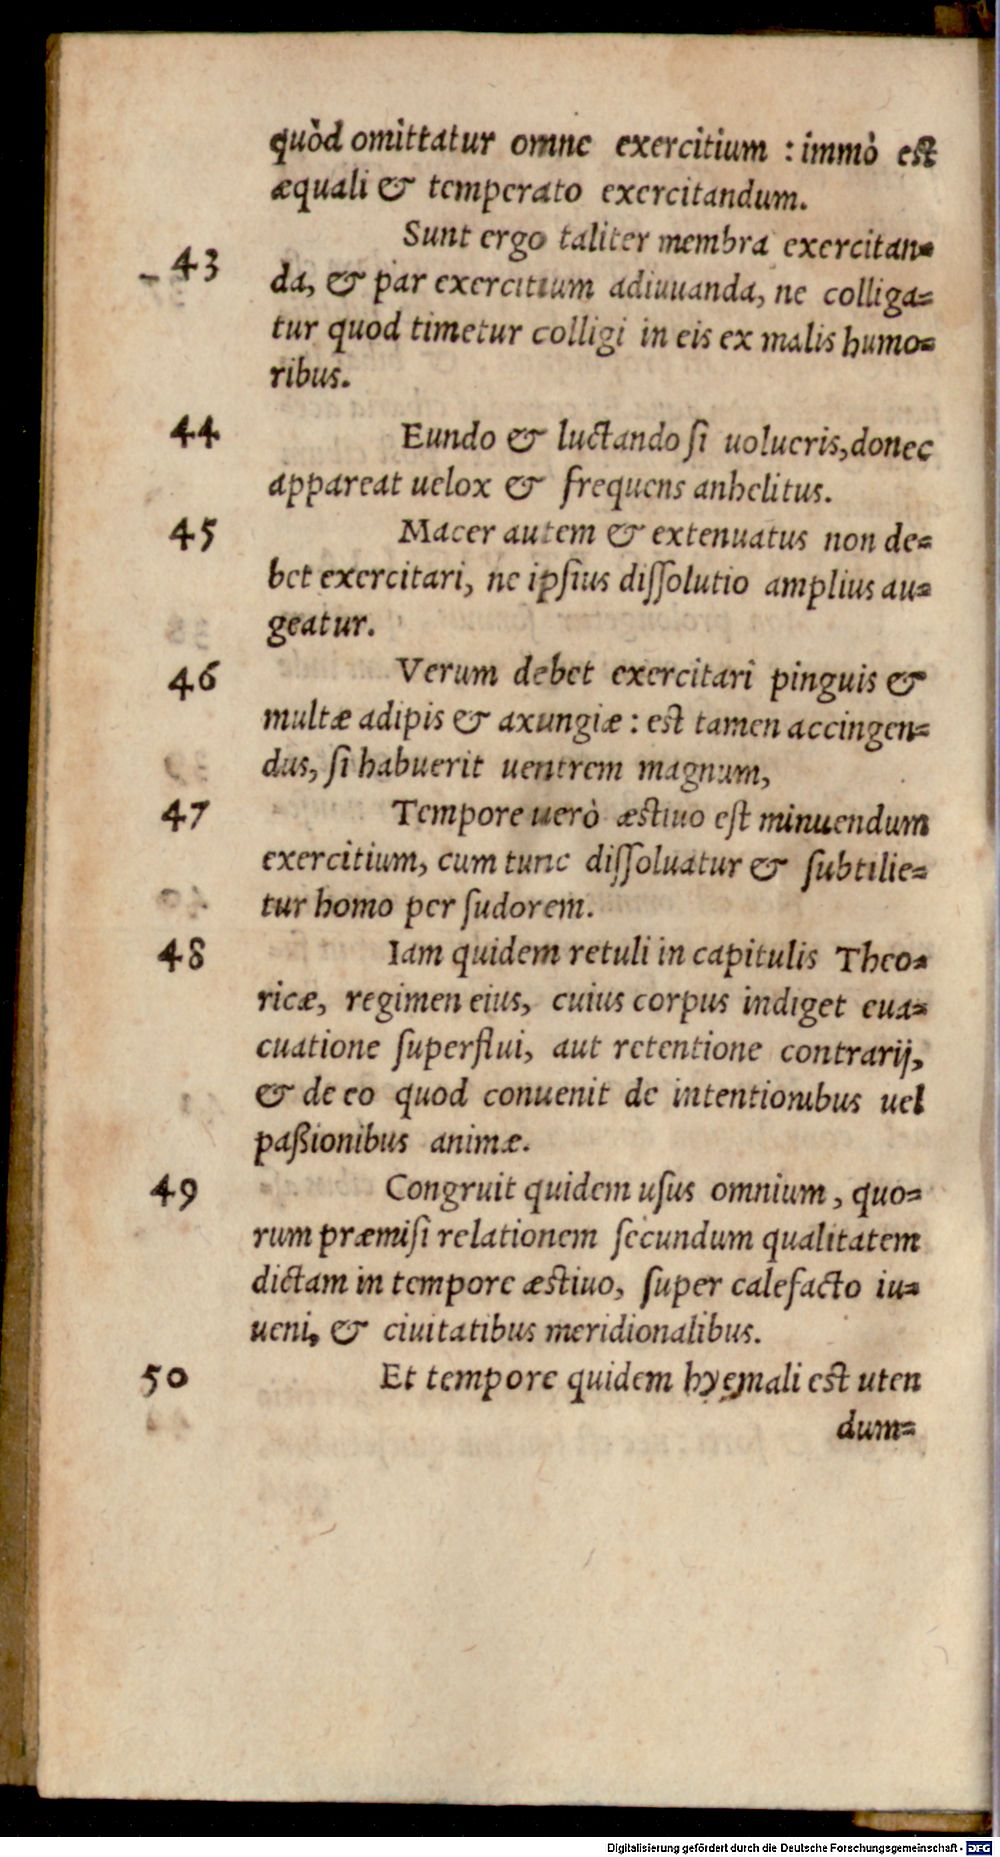 quòd omittatur omne exercitium : immò est
æquali & temperato exercitandum.
43 Sunt ergo taliter membra exercitan=
da, & par exercitium adiuuanda, ne colliga=
tur quod timetur colligi in eis ex malis humo=
ribus.
44 Eundo & luctando ſi uolueris, donec
appareat uelox & frequens anhelitus.
45 Macer autem & extenuatus non de=
bet exercitari, ne ipſius diſſolutio amplius au=
geatur.
46 Verum debet exercitari pinguis &
multæ adipis & axungiæ : est tamen accingen=
dus, ſi habuerit uentrem magnum,
47 Tempore uerò æstiuo eſt minuendum
exercitium, cum tunc diſſoluatur & ſubtilie=
tur homo per ſudorem.
48 Iam quidem retuli in capitulis Theo=
ricæ, regimen eius, cuius corpus indiget eua=
cuatione ſuperflui, aut retentione contrarij,
& de eo quod conuenit de intentionibus uel
paßionibus animæ.
49 Congruit quidem uſus omnium, quo=
rum præmiſi relationem ſecundum qualitatem
dictam in tempore æstiuo, ſuper calefacto iu=
ueni, & ciuitatibus meridionalibus.
50 Et tempore quidem hyemali est uten
dum=
Digitalisierung gefördert durch die Deutsche Forschungsgemeinschaft - DFG